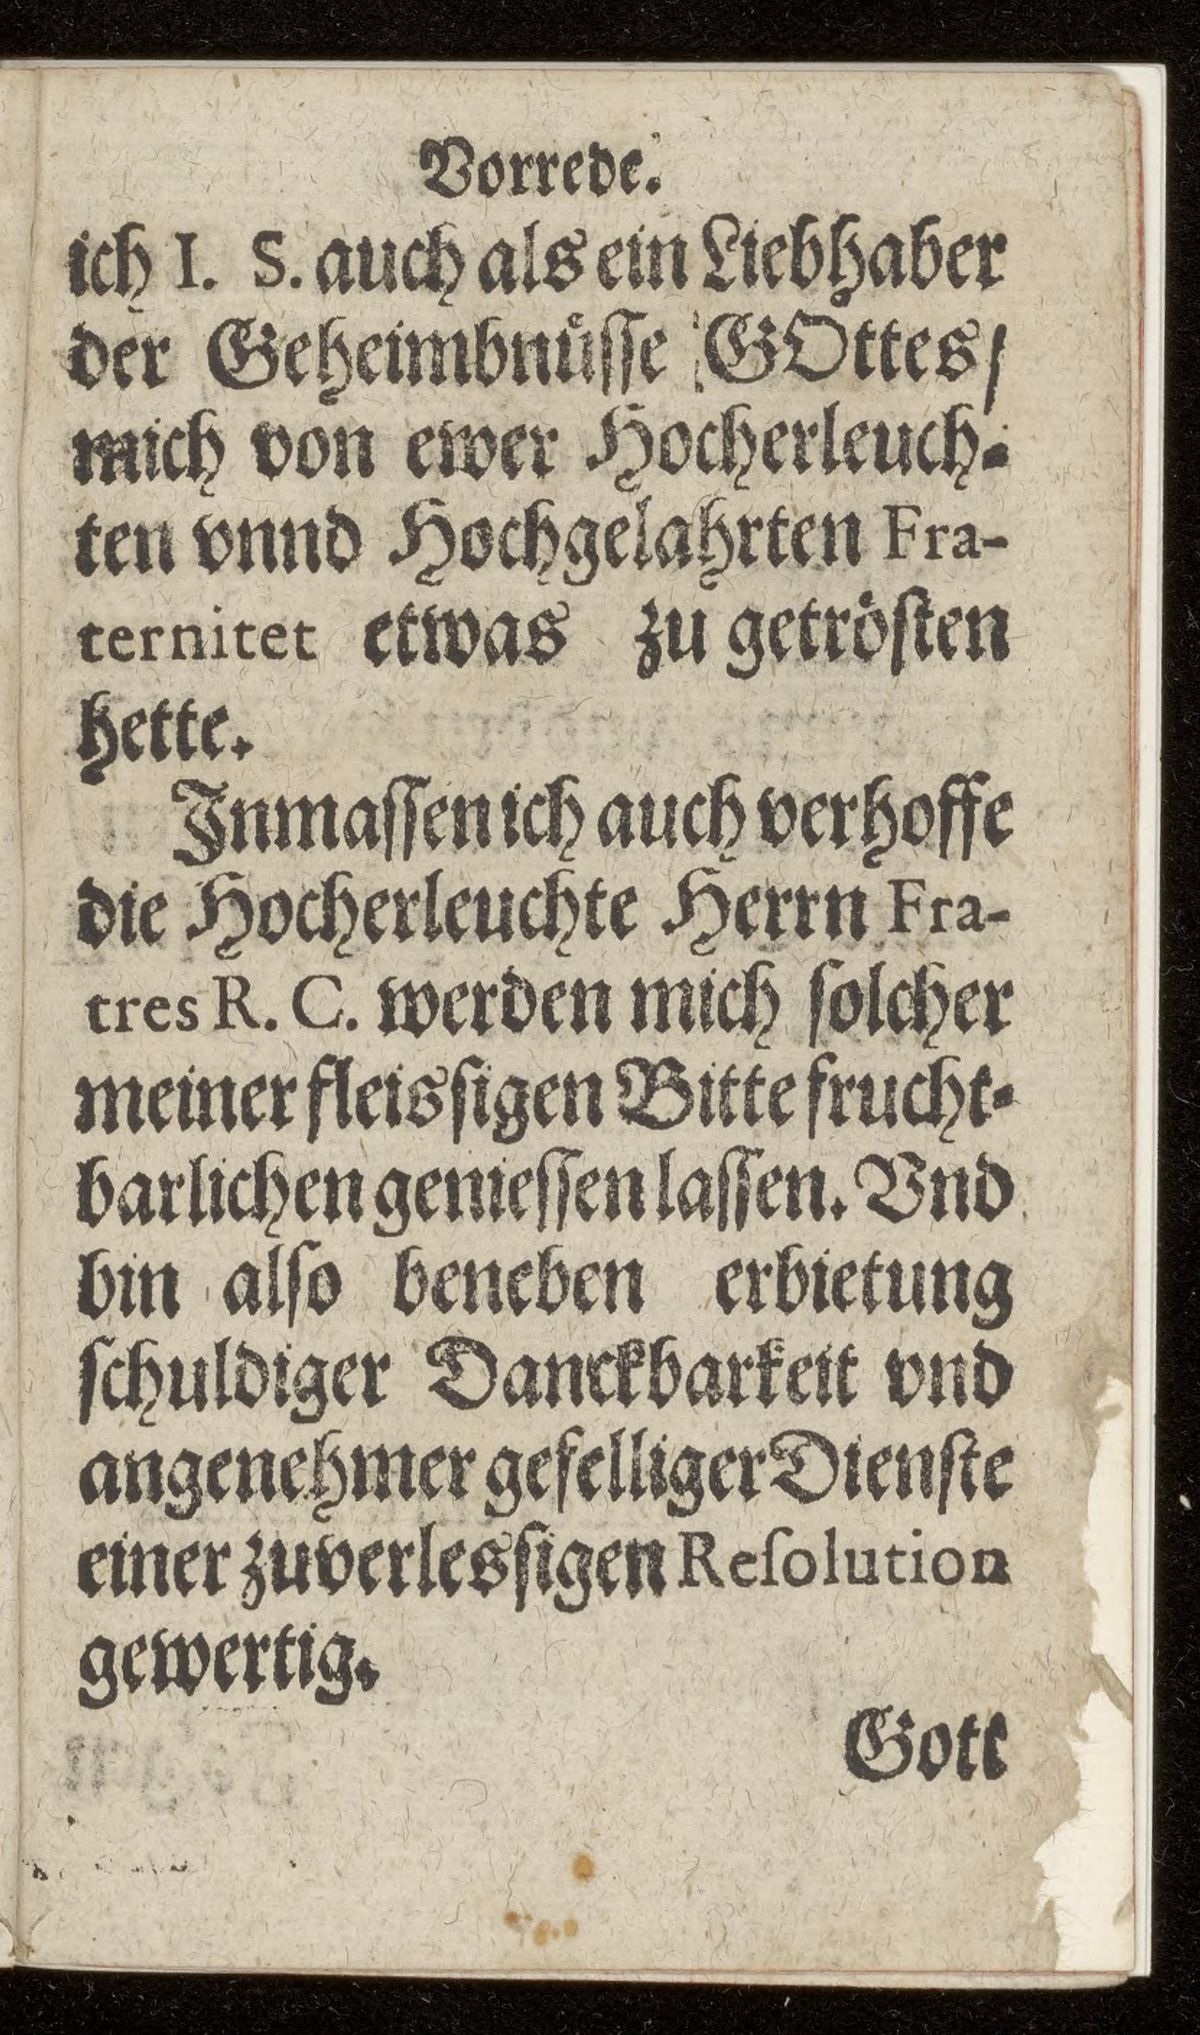 Vorrede.
ich I. S. auch als ein Liebhaber
der Geheimbnüſſe GOttes/
mich von ewer Hocherleuch-
ten vnnd Hochgelahrten Fra-
ternitet etwas zu getröſten
hette.
Inmaſſen ich auch verhoffe
die Hocherleuchte Herrn Fra-
tres R. C. werden mich ſolcher
meiner fleisſigen Bitte frucht-
barlichen genieſſen laſſen. Vnd
bin alſo beneben erbietung
ſchuldiger Danckbarkeit vnd
angenehmer gefelliger Dienſte
einer zuverlesſigen Reſolution
gewertig.
Gott